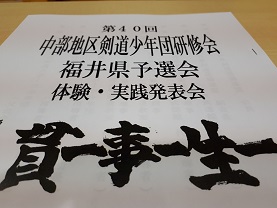 第40回
中部地区剣道少年団研修会
福井県予選会
体験・実践発表会
一生一事一貫